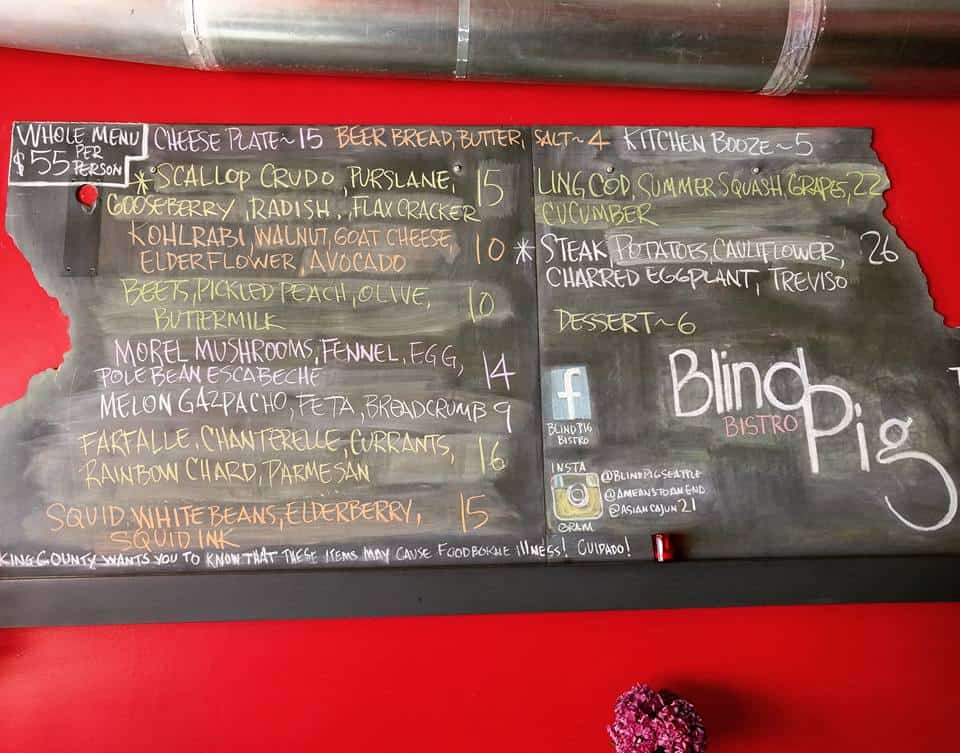 WHOLE MENU
$55 PER PERSON
CHEESE PLATE~15 BEER BREAD, BUTTER, SALT~4 KITCHEN BOOZE~5
*SCALLOP CRUDO, PURSLANE, 15
GOOSEBERRY, RADISH, FLAX CRACKER
KOHLRABI, WALNUT, GOAT CHEESE, 10
ELDERFLOWER, AVOCADO
BEETS, PICKLED PEACH, OLIVE, 10
BUTTERMILK
MOREL MUSHROOMS, FENNEL, EGG, 14
POLE BEAN ESCABECHE
MELON GAZPACHO, FETA, BREADCRUMB 9
FARFALLE, CHANTERELLE, CURRANTS, 16
RAINBOW CHARD, PARMESAN
SQUID, WHITE BEANS, ELDERBERRY, 15
SQUID INK
LING COD, SUMMER SQUASH, GRAPES, 22
CUCUMBER
*STEAK, POTATOES, CAULIFLOWER, 26
CHARRED EGGPLANT, TREVISO
DESSERT~6
f
BLIND PIG
BISTRO
Blind
BISTRO
Pig
INSTA
GRAM
@BLINDPIGSEATTLE
@AMEANSTOANEND
@ASIANCAJUN21
KING COUNTY WANTS YOU TO KNOW THAT THESE ITEMS MAY CAUSE FOODBORNE illNESS! CUIDADO!